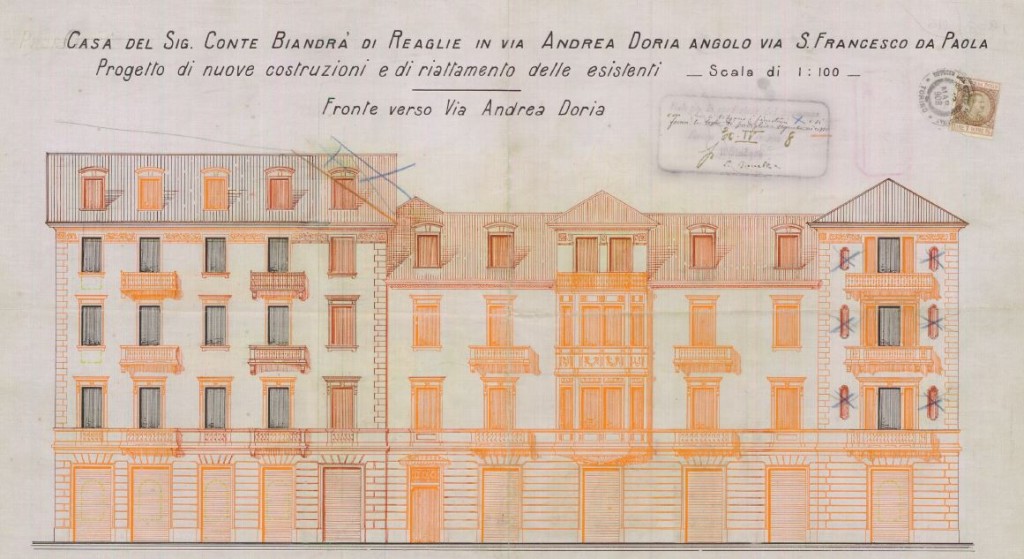 CASA DEL SIG. CONTE BIANDRÀ DI REAGLIE IN VIA ANDREA DORIA ANGOLO VIA S. FRANCESCO DA PAOLA
Progetto di nuove costruzioni e di riattamento delle esistenti — Scala di 1:100 —
Fronte verso Via Andrea Doria